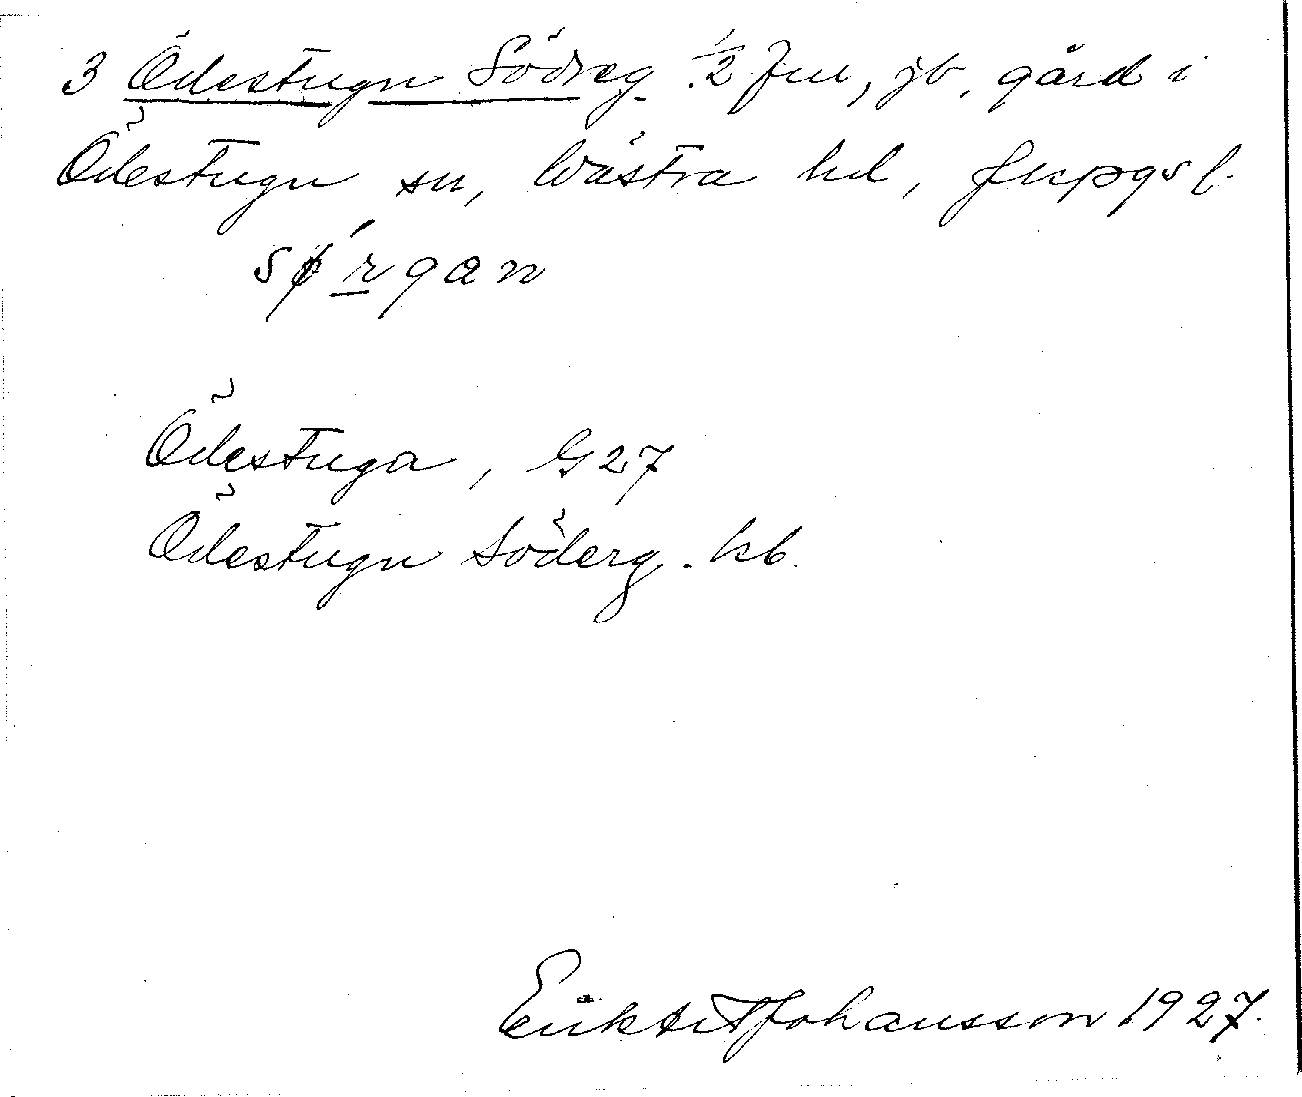 3 Ödestugn Södreg. 1/2 fm, jb, gård i
Ödestugu sn, Västra hd, Jkpgs l.
sǿrgan
Ödestuga, G27
Ödestugu Söderg. kb.
Johansson 1927.